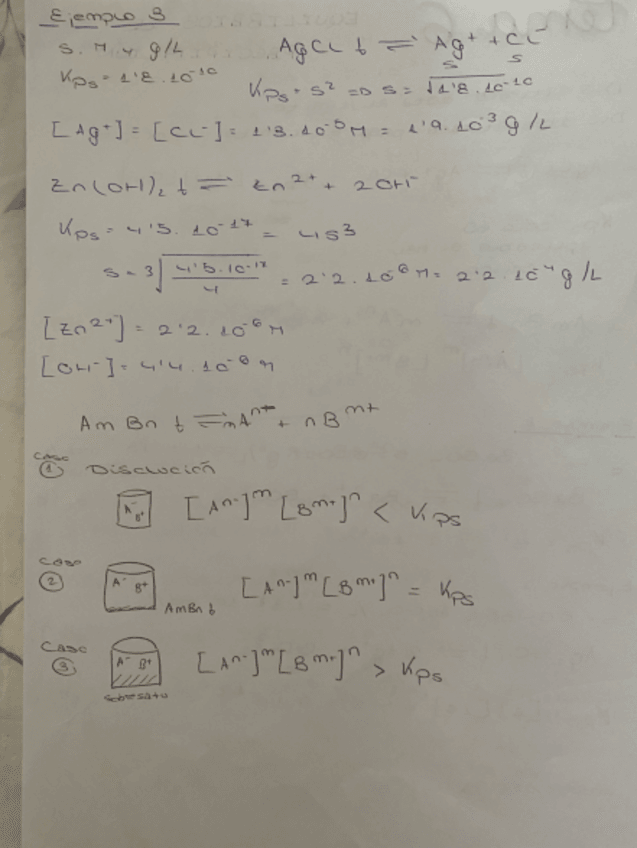 Ejemplo 3
S. M y g/L AgCl ↓ ⇌ Ag⁺ + Cl⁻
s s
Kps = 1'8. 10⁻¹⁰ Kps = s² => s = √1'8. 10⁻¹⁰
[Ag⁺] = [Cl⁻] = 1'3. 10⁻⁵ M = 1'9. 10⁻³ g/L
Zn(OH)₂ ↓ ⇌ Zn²⁺ + 2OH⁻
Kps = 4'5. 10⁻¹⁷ = 4s³
s = 3√4'5. 10⁻¹⁷/4 = 2'2. 10⁻⁶ M = 2'2. 10⁻⁴ g/L
[Zn²⁺] = 2'2. 10⁻⁶ M
[OH⁻] = 4'4. 10⁻⁶ M
Am Bn ↓ ⇌ mAⁿ⁺ + nBᵐ⁺
Caso
① Disolución
A⁻ B⁺ [Aⁿ⁻]ᵐ [Bᵐ⁺]ⁿ < Kps
Caso
② A⁻ B⁺ [Aⁿ⁻]ᵐ [Bᵐ⁺]ⁿ = Kps
AmBn ↓
Caso
③ A⁻ B⁺ [Aⁿ⁻]ᵐ [Bᵐ⁺]ⁿ > Kps